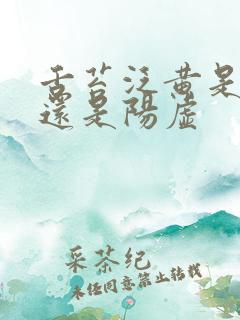 舌苔泛黄是
還是陽虛
采茶纪
未经同意禁止转载